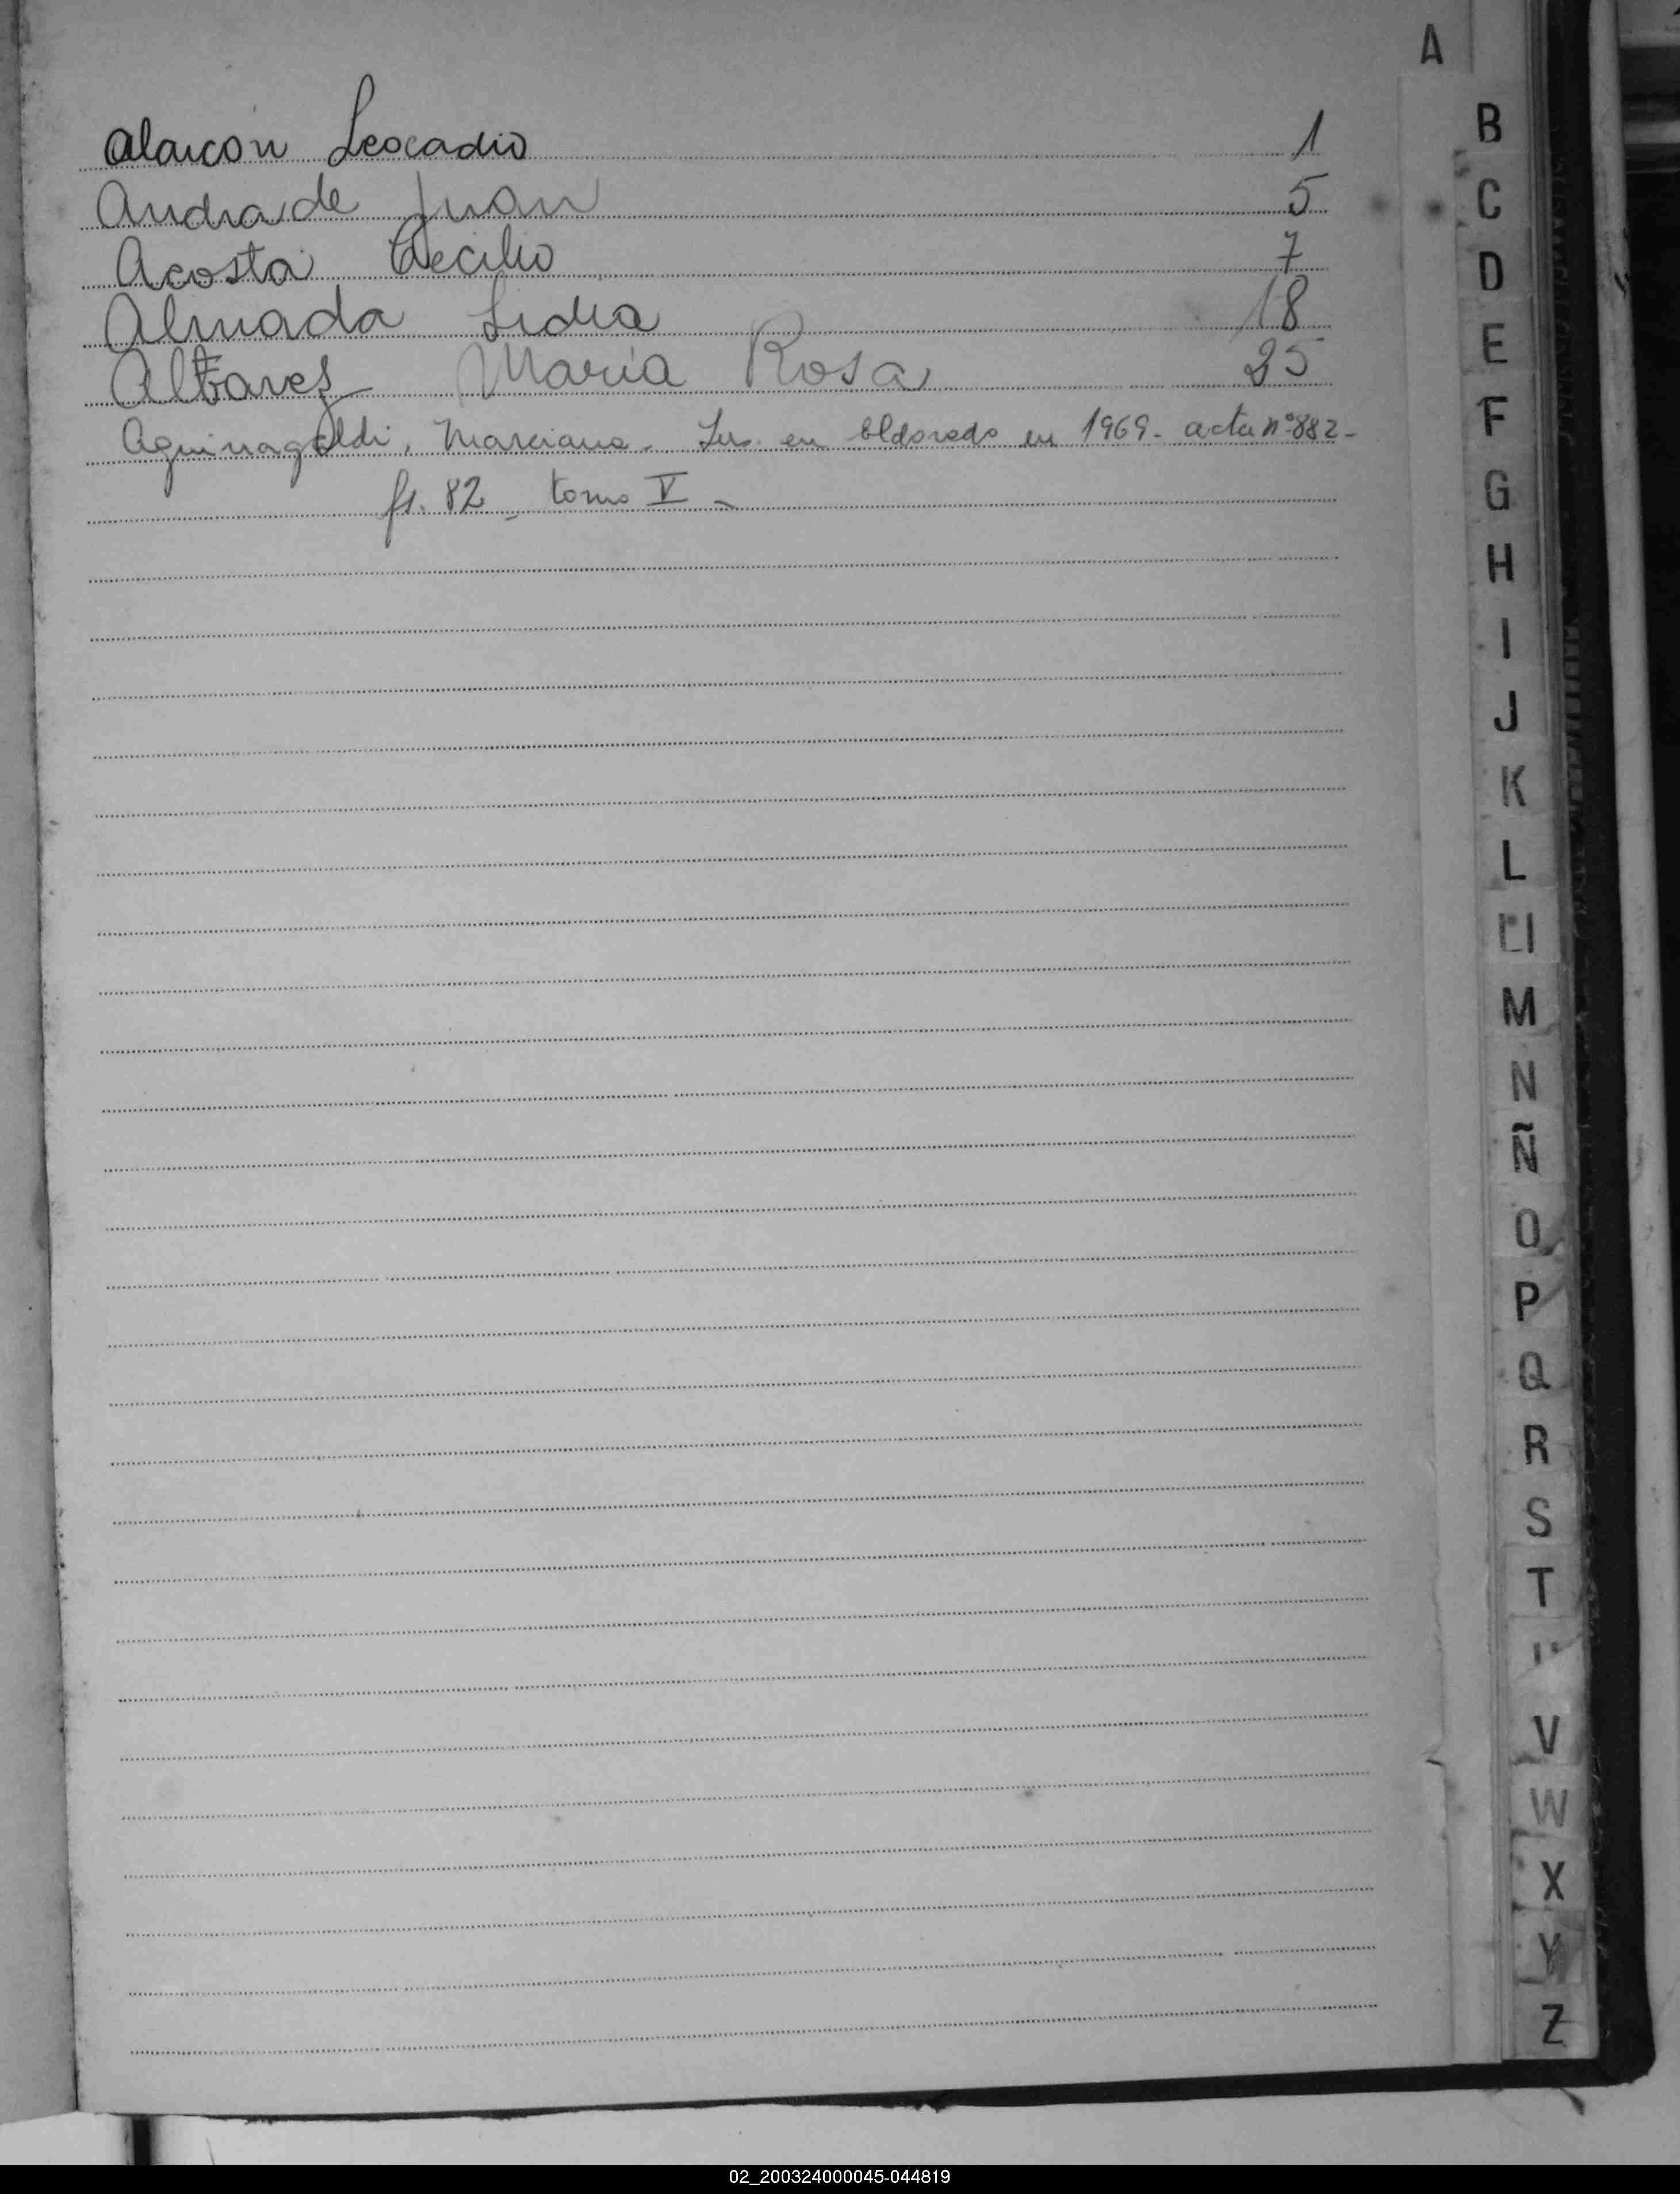 A
Alarcon Leocadio 1
Andrade Juan 5
Acosta Cecilio 7
Almada Lidia 18
Maria Rosa 25
Aguinagaldi, Marciana - Ins. en Eldorado en 1969 - acta nº 882 -
fs. 82 - tomo V -
B
C
D
E
F
G
H
I
J
K
L
M
N
Ñ
O
P
Q
R
S
T
V
W
X
Y
Z
02_200324000045-044819